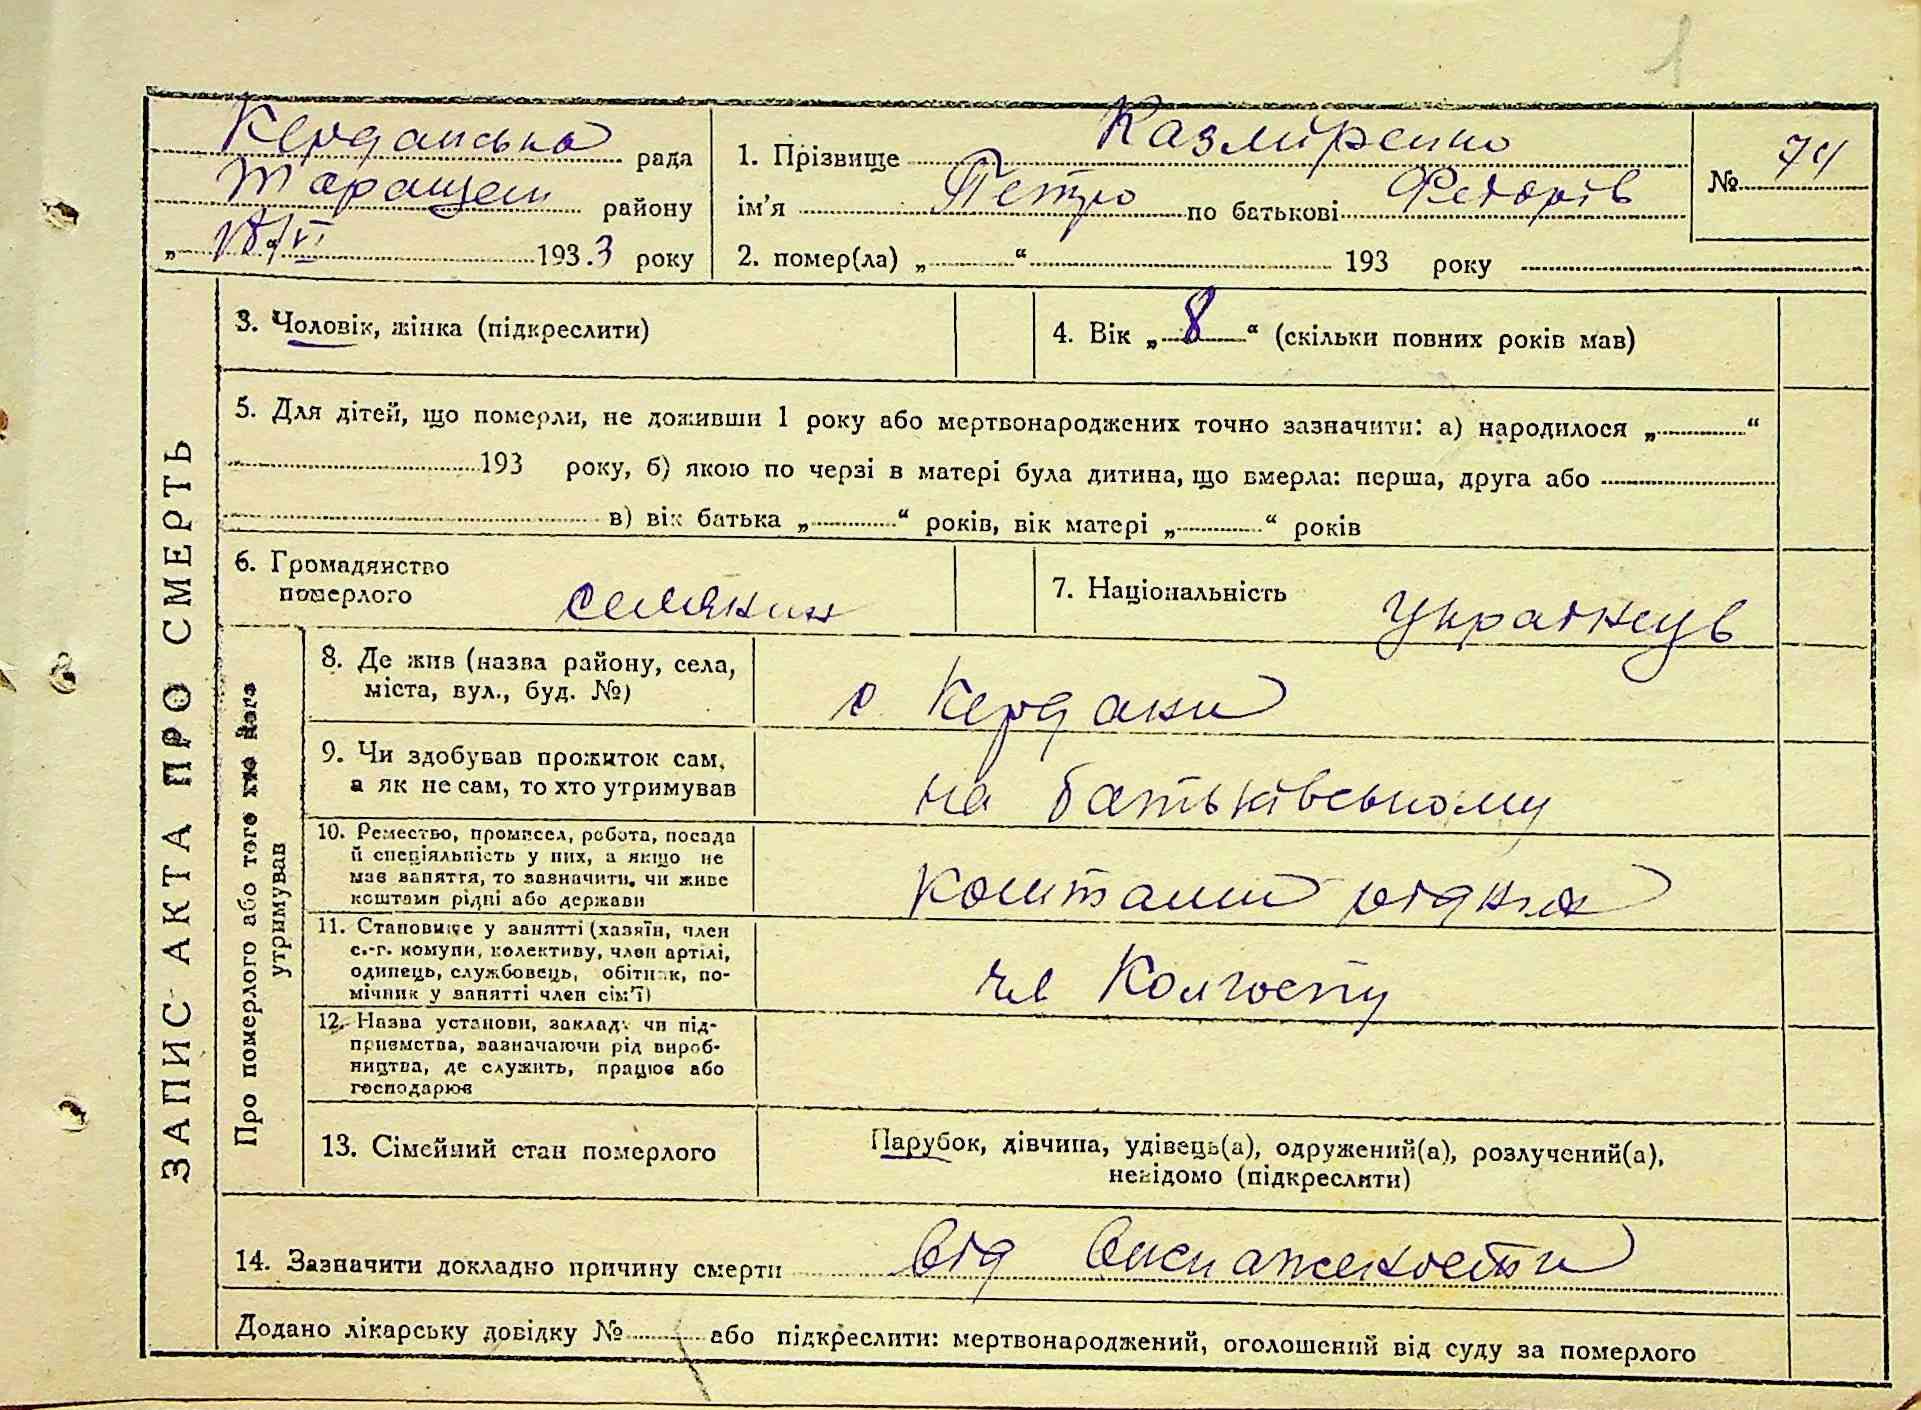 1
Керданська рада
Таращан району
„ 18/VI 193.3 року
1. Прізвище Казміренко
ім’я Петро по батькові Федорів
2. помер(ла) „ “ 193 року
№ 74
ЗАПИС АКТА ПРО СМЕРТЬ
3. Чоловік, жінка (підкреслити)
4. Вік „ 8 “ (скільки повних років мав)
5. Для дітей, що померли, не доживши 1 року або мертвонароджених точно зазначити: а) народилося „ “
193 року, б) якою по черзі в матері була дитина, що вмерла: перша, друга або
в) вік батька „ “ років, вік матері „ “ років
6. Громадянство
померлого селянин
7. Національність українець
Про померлого або того хто його
утримував
8. Де жив (назва району, села,
міста, вул., буд. №)
с Кердани
9. Чи здобував прожиток сам,
а як не сам, то хто утримував
на батьківському
10. Ремество, промисел, робота, посада
й спеціяльність у них, а якщо не
має заняття, то зазначити, чи живе
коштами рідні або держави
коштами рідних
11. Становище у занятті (хазяїн, член
с.-г. комуни, колективу, член артілі,
одинець, службовець, обітник, по-
мічник у занятті член сім’ї)
чл Колгоспу
12. Назва установи, закладу чи під-
приємства, зазначаючи рід вироб-
ництва, де служить, працює або
господарює
13. Сімейний стан померлого
Парубок, дівчина, удівець(а), одружений(а), розлучений(а),
невідомо (підкреслити)
14. Зазначити докладно причину смерти від виснажености
Додано лікарську довідку № або підкреслити: мертвонароджений, оголошений від суду за померлого